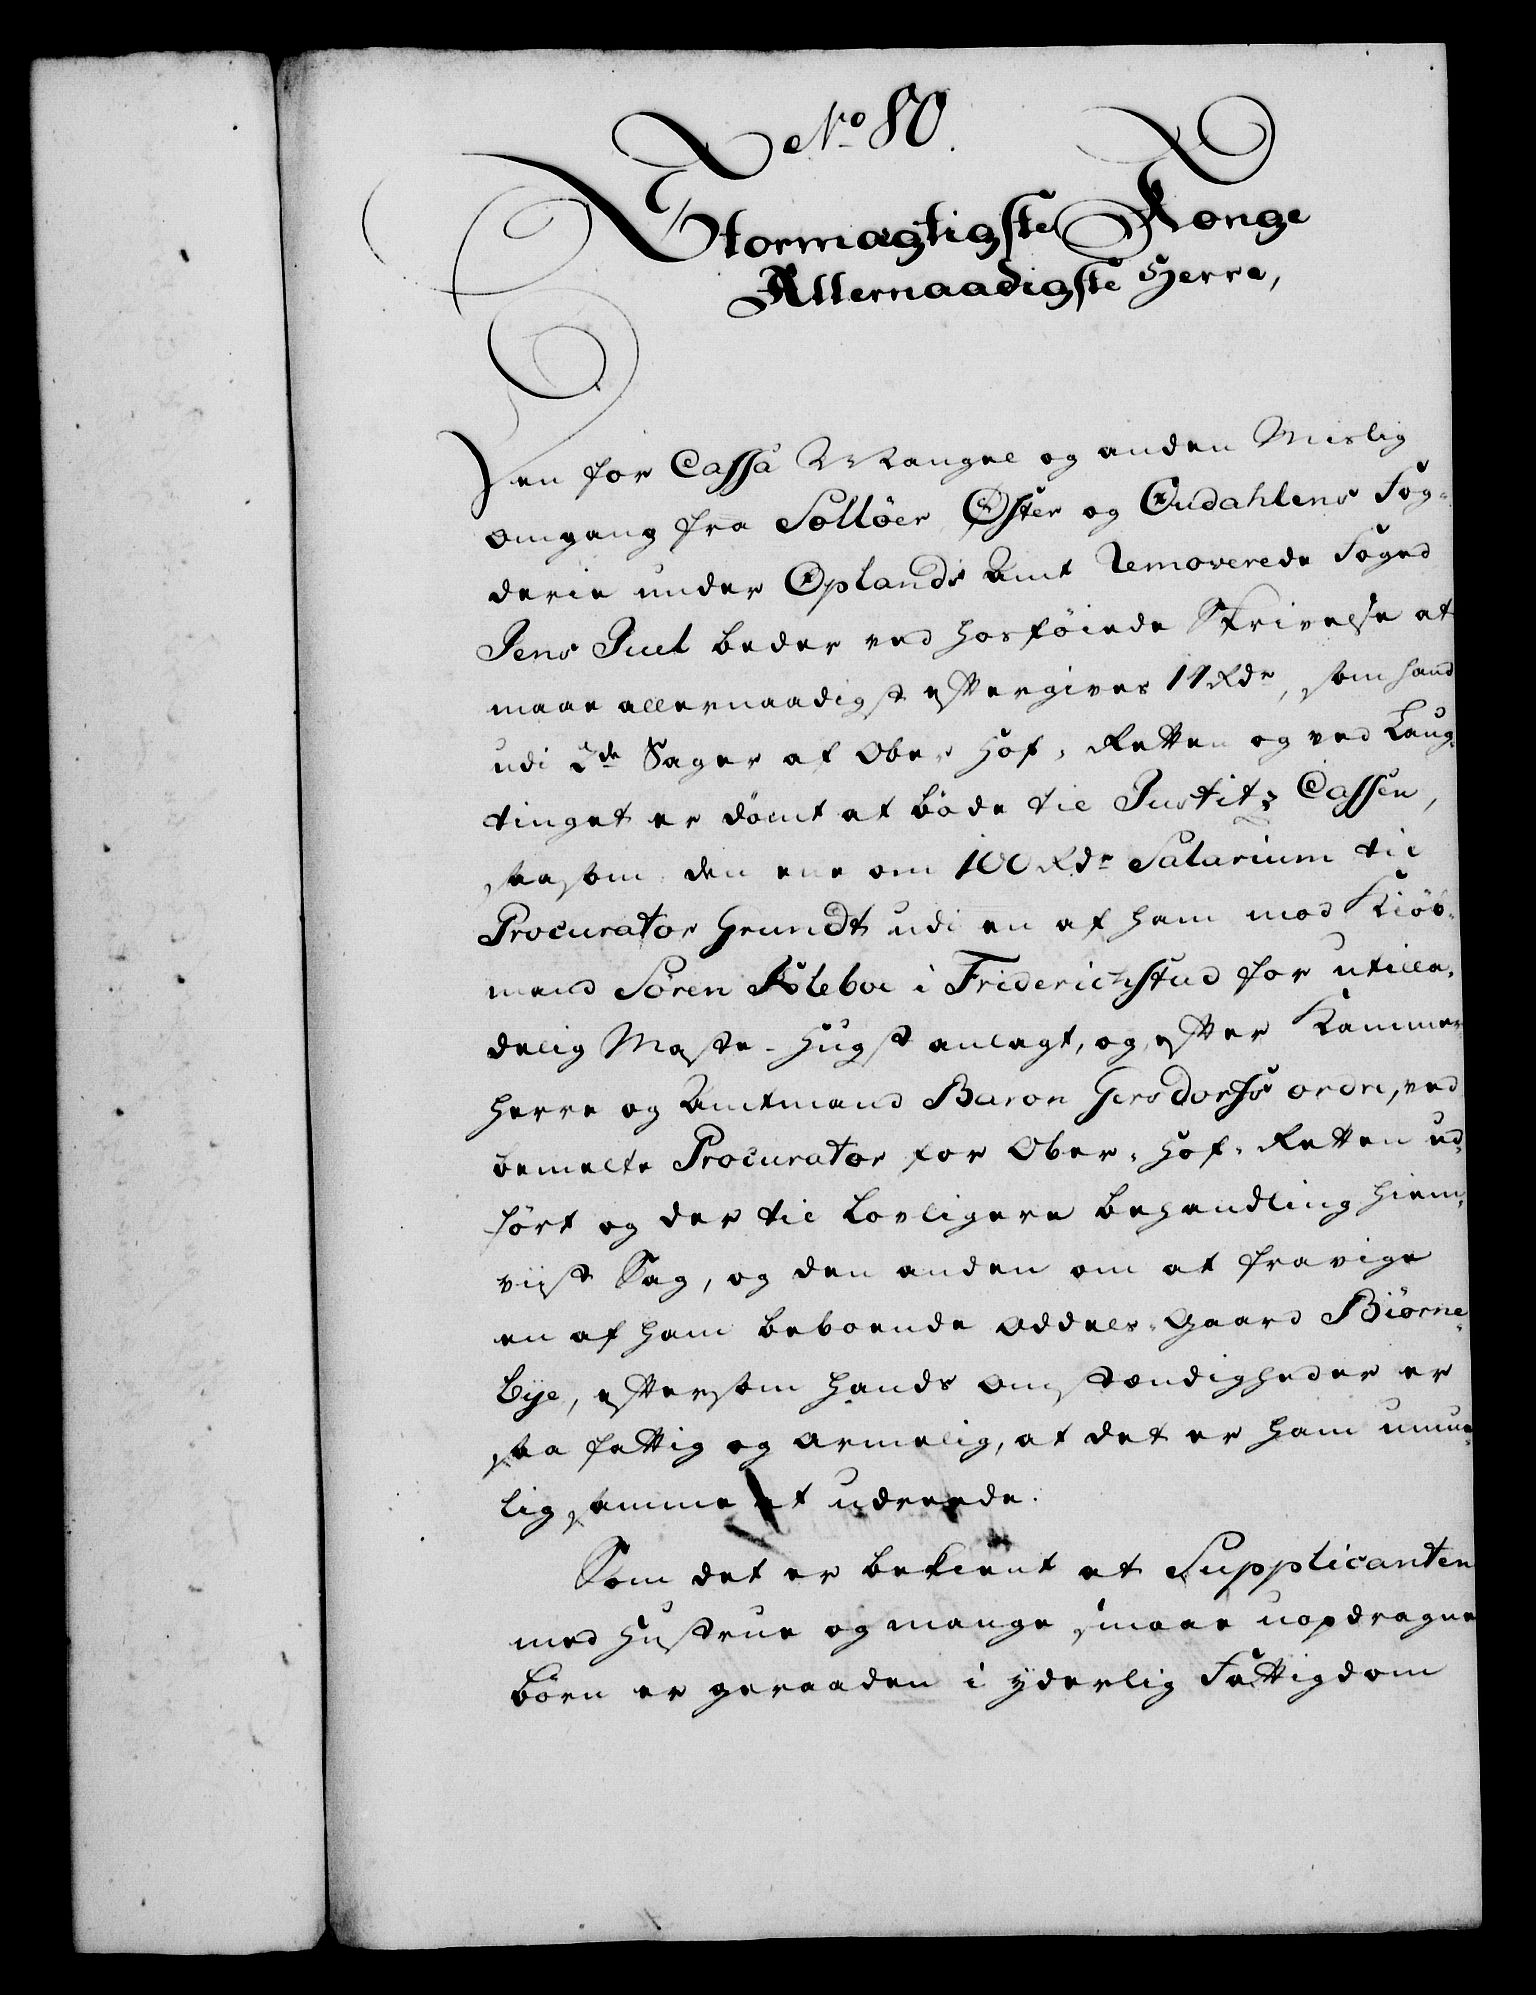 No 80.
Stormægtigste Konge
Allernaadigste Herre,
Den for Cassa Mangel og anden Mislig
omgang fra Solløer Øster og Oudahlens Fog-
derie under Oplands Amt Removerede Foged
Jens Juel beder ved hosføiede Skrivelse at
maae allernaadigst eftergives 11 Rdr, som hand
udi 2de Sager af Ober Hof-Retten og ved Laug-
tinget er dømt at bøde til Justitz Cassen,
saasom den ene om 100 Rdr Salarium til
Procurator Grundt udi en af ham mod Kiøb-
mand Søren Kleboe i Friderichstad for utilla-
delig Maste-Hugst anlagt, og efter Kammer
Herre og Amtmand Baron Gersdorfs ordre, ved
bemelte Procurator for Ober-Hof-Retten ud-
ført og der til lovligere behandling hiem-
viist Sag, og den anden om at fravige
en af ham beboende odels-Gaard Biørne-
bye, eftersom hands omstændigheder er
saa fattig og armelig, at det er ham umue-
lig samme at udreede.
Som det er bekient at Supplicanten
med Hustrue og mange smaae uopdragne
Børn er geraaden i yderlig Fattigdom